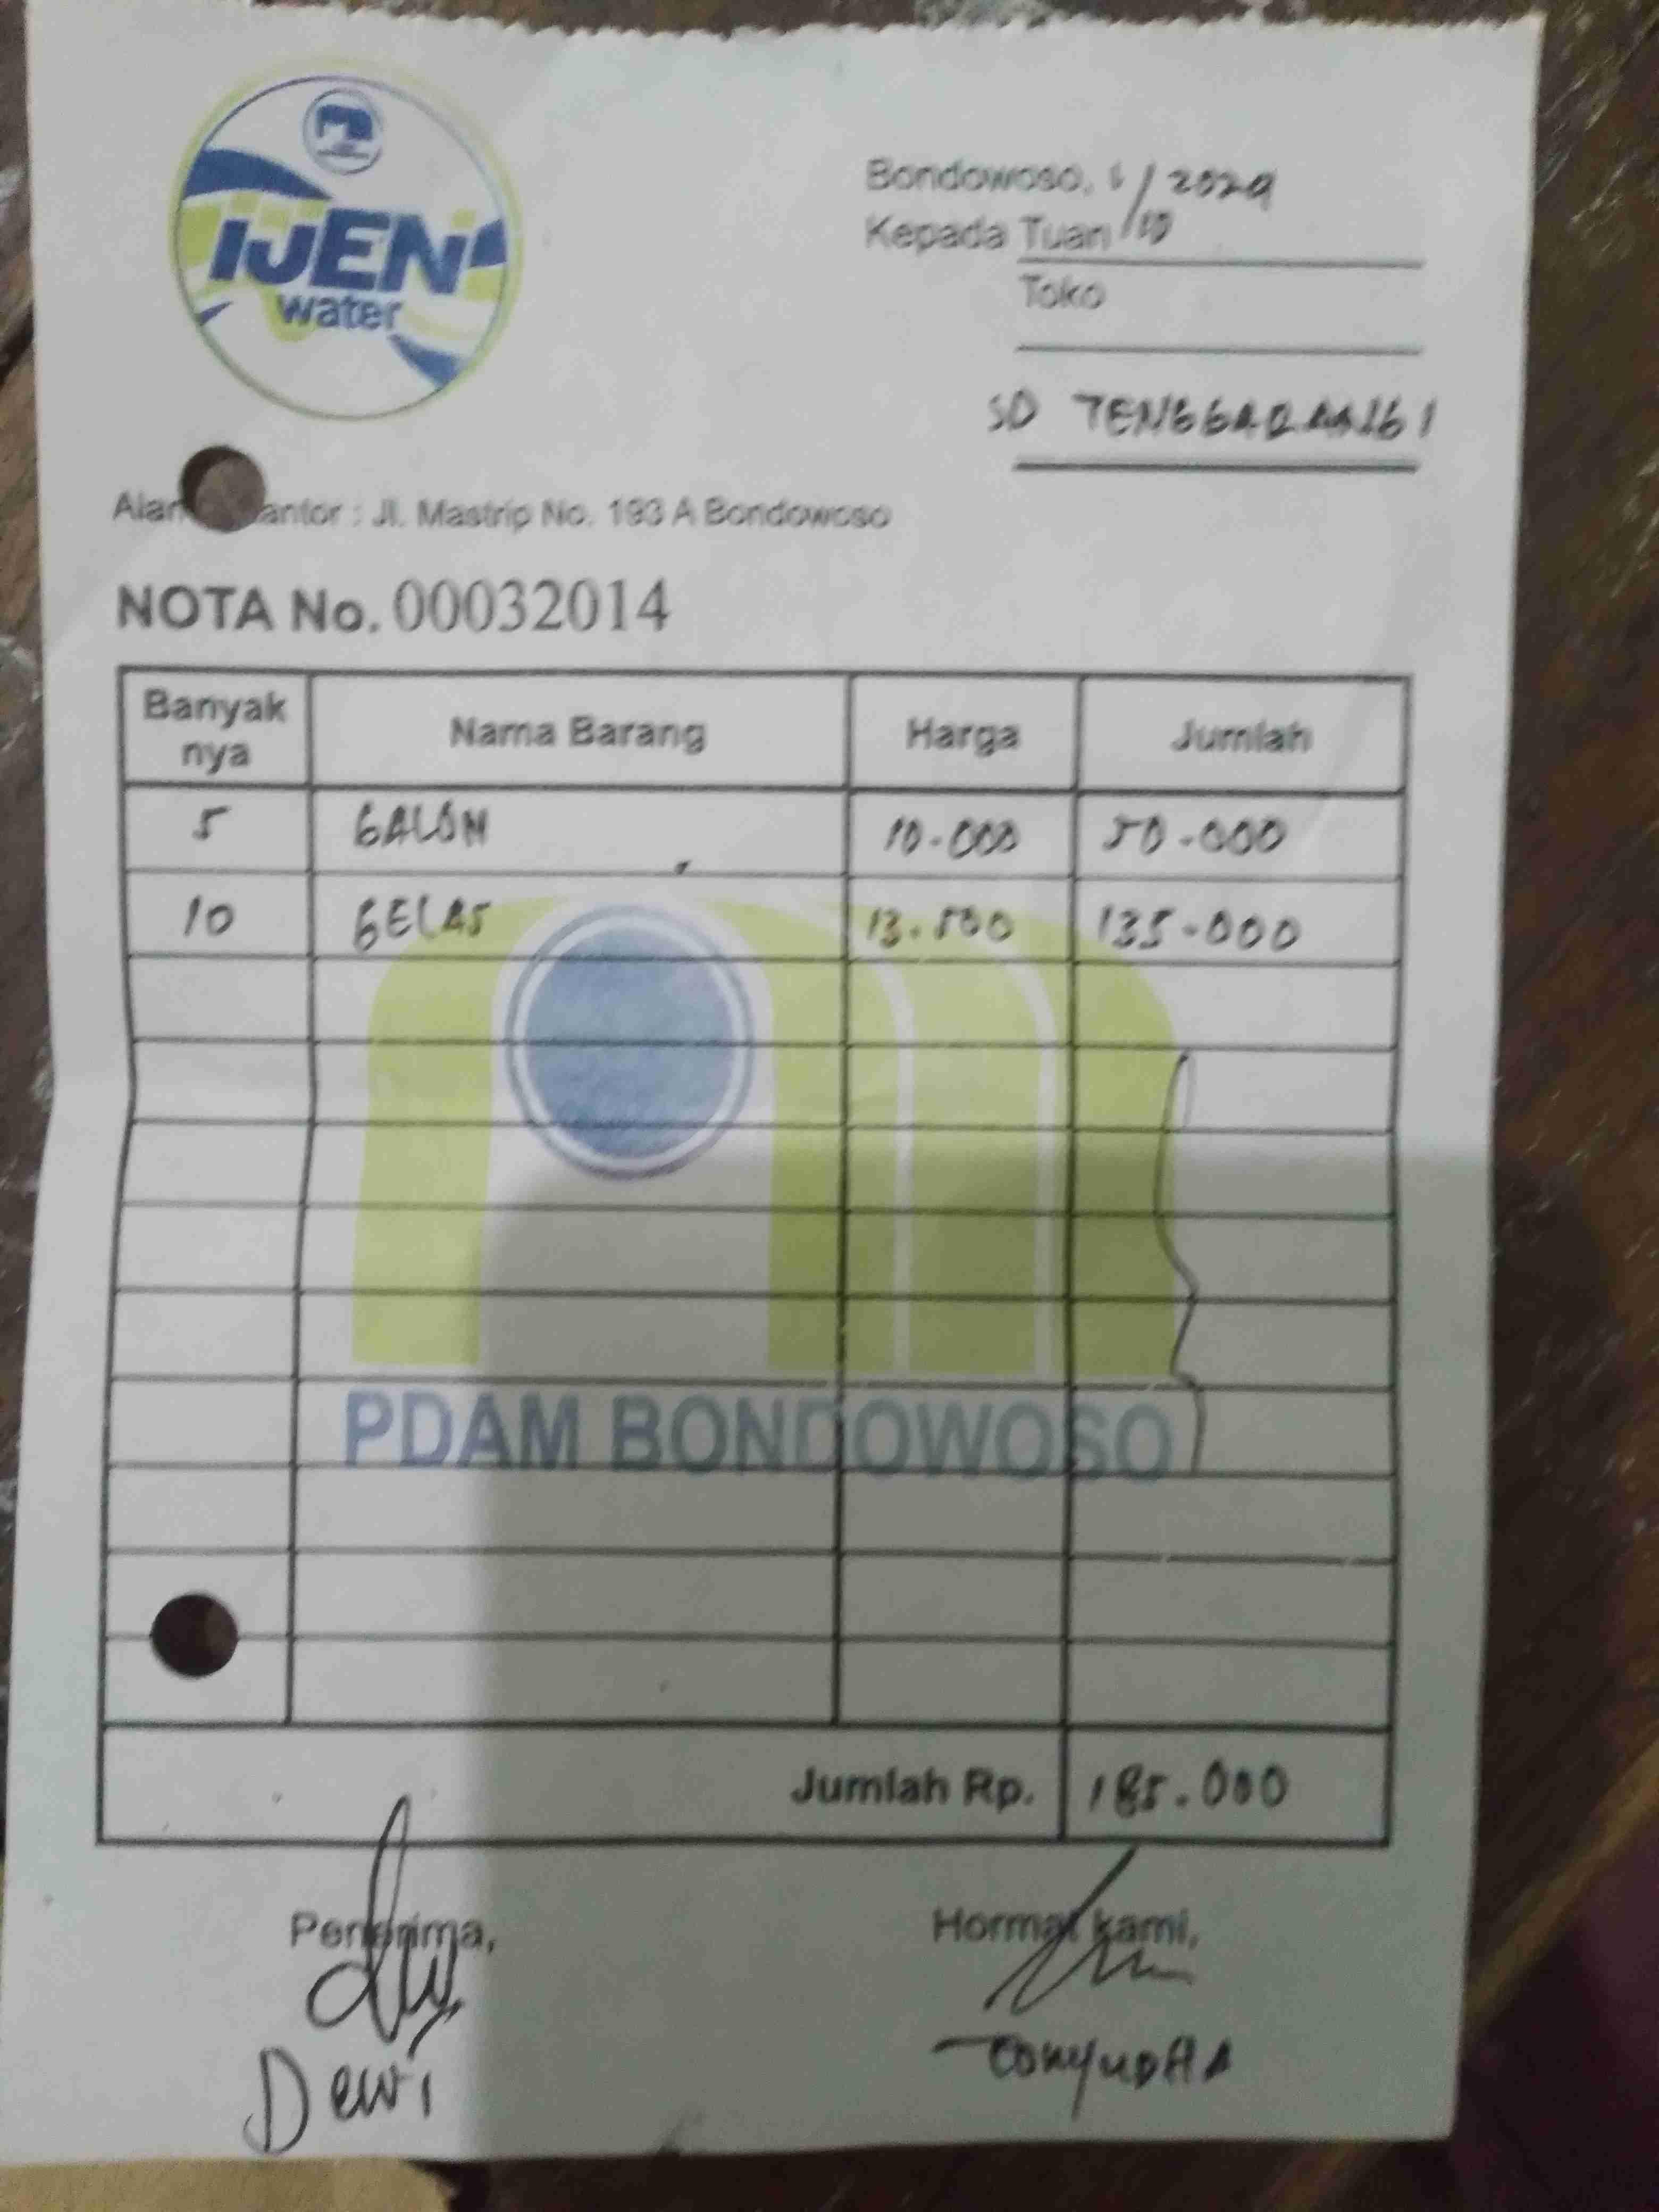 IJEN
water
Bondowoso, 1/10 2024
Kepada Tuan
Toko
SD TENGGARANG 1
Kantor : Jl. Mastrip No. 193 A Bondowoso
NOTA No. 00032014
Banyak nya Nama Barang Harga Jumlah
5 GALON 10.000 50.000
10 GELAS 13.500 135.000
PDAM BONDOWOSO
Jumlah Rp. 185.000
Penerima, Hormat kami,
Dewi